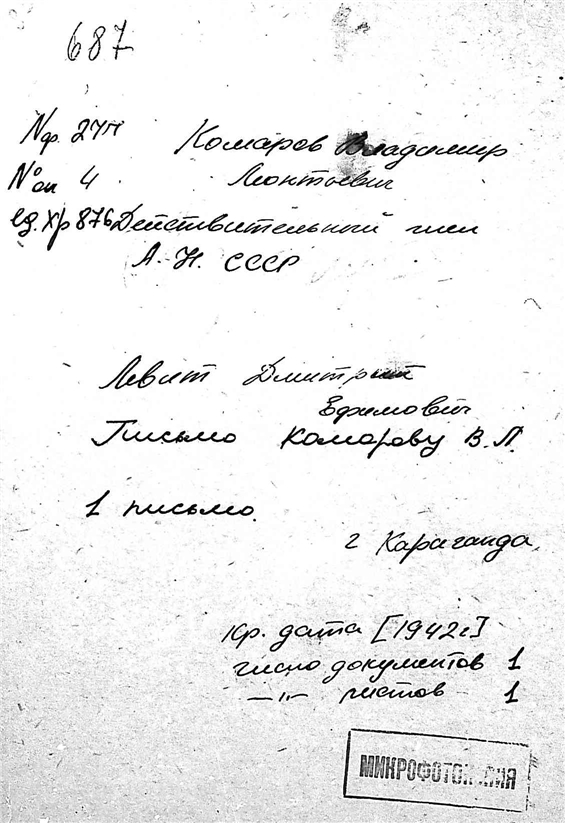 687
№ф. 277 Комаров Владимир
№оп 4 Леонтьевич
ед.хр 876 Действительный член
А. Н. СССР
Левит Дмитрий
Ефимович
Письмо Комарову В. Л.
1 письмо.
г Караганда
Кр. дата [1942г]
число документов 1
—"— листов 1
МИКРОФОТОКОПИЯ